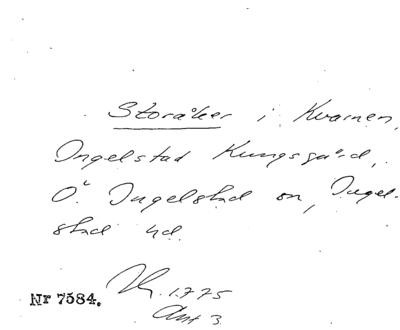 Storåker i Kvarnen,
Ingelstad Kungsgård,
Ö. Ingelstad sn, Ingel-
stad hd.
1775
Akt 3
Nr 7584.